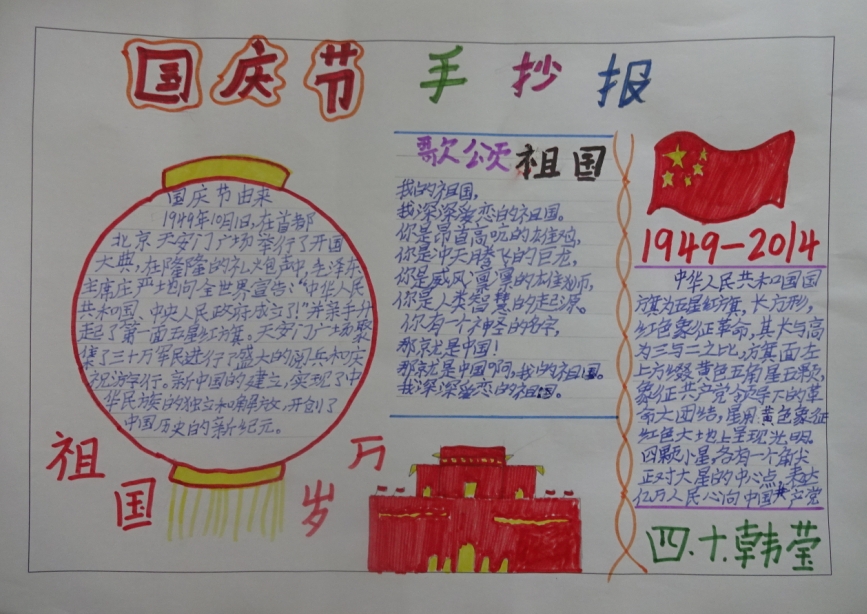 国庆节 手抄报
国庆节由来
1949年10月1日,在首都
北京天安门广场举行了开国
大典,在隆隆的礼炮声中,毛泽东
主席庄严地向全世界宣告:“中华人民
共和国、中央人民政府成立了!”并亲手升
起了第一面五星红旗。天安门广场聚
集了三十万军民进行了盛大的阅兵和庆
祝游行。新中国的建立,实现了中
华民族的独立和解放,开创了
中国历史的新纪元。
祖国万岁
歌颂祖国
我的祖国,
我深深爱恋的祖国。
你是昂首高吭的雄鸡,
你是冲天腾飞的巨龙,
你是威风凛凛的雄狮,
你是人类智慧的起源。
你有一个神圣的名字,
那就是中国!
那就是中国啊,我的祖国。
我深深爱恋的祖国。
1949—2014
中华人民共和国国
旗为五星红旗,长方形,
红色象征革命,其长与高
为三与二之比,旗面左
上方缀黄色五角星五颗,
象征共产党领导下的革
命大团结,星用黄色象征
红色大地上呈现光明。
四颗小星各有一个角尖
正对大星的中心点,表达
亿万人民心向中国共产党
四.十.韩莹